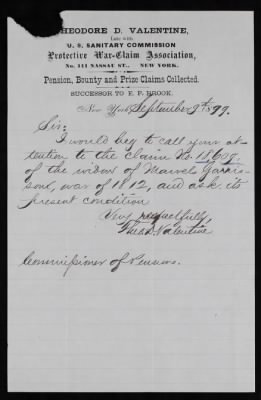 THEODORE D. VALENTINE,
Late with
U. S. SANITARY COMMISSION
Protective War-Claim Association,
No. 141 NASSAU ST., NEW YORK.
Pension, Bounty and Prize Claims Collected.
SUCCESSOR TO E. P. BROOK.
New York, September 9th 99.
Sir:
I would beg to call your at-
tention to the claim No. 18609
of the widow of Garri-
son, war of 1812, and ask its
present condition
Very respectfully
Theo D. Valentine
Commissioner of Pensions.